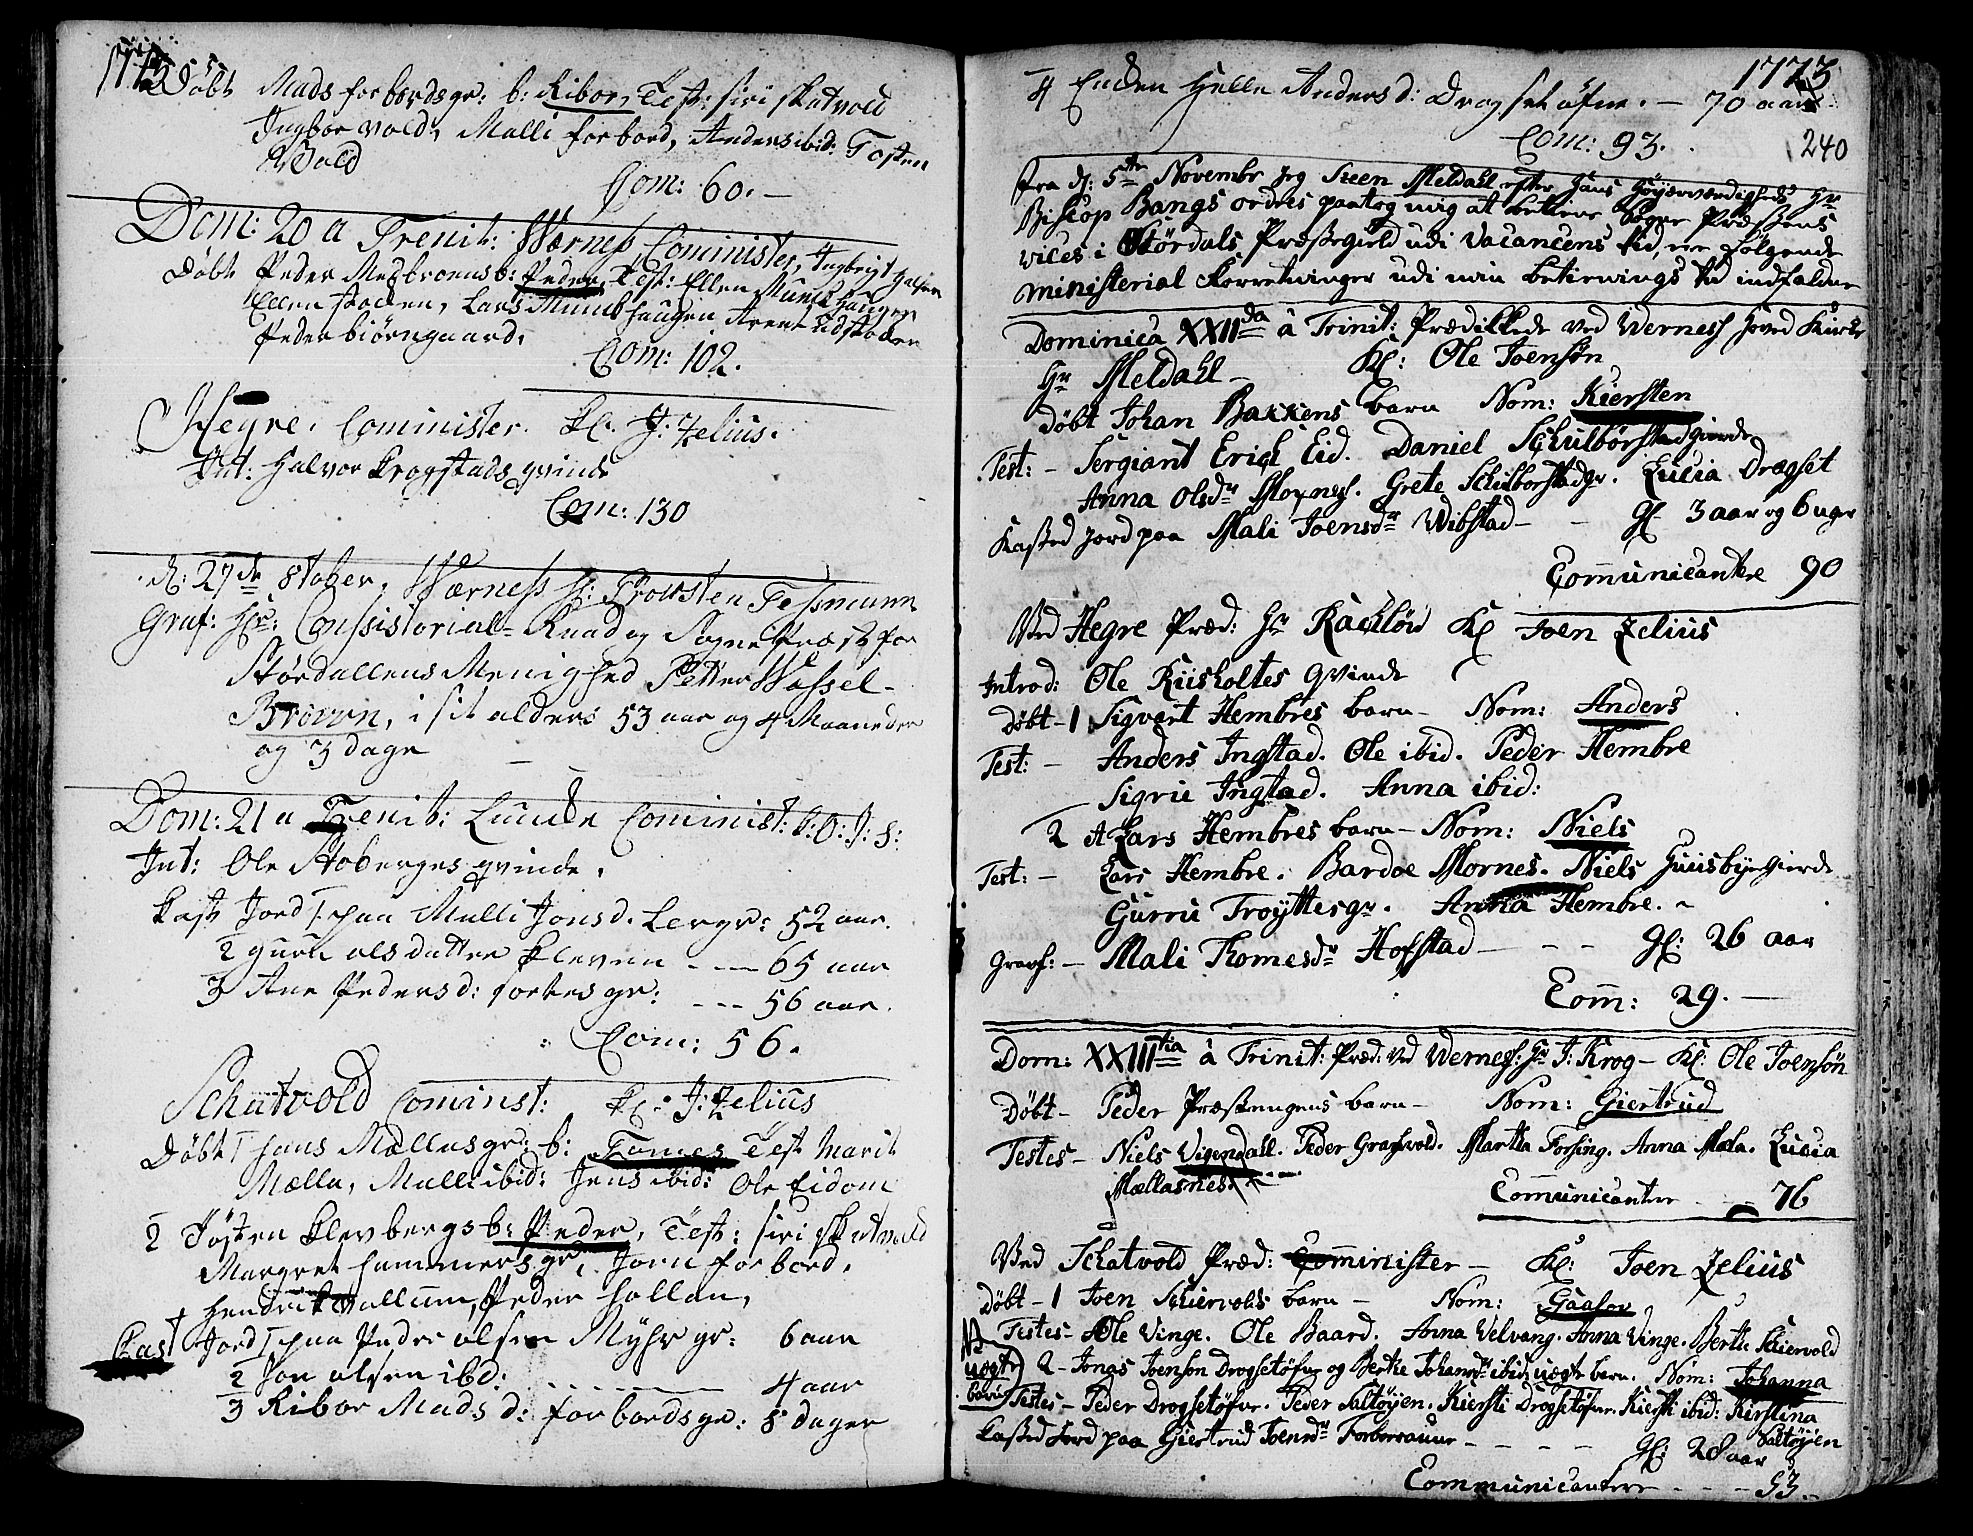 1773
Döbt Mads forbordsgr: b: Ribor, Test: siri skatvold
Ingbor vold, Malli forbord, Anders ibid: Tosten
Wold
Com: 60. –
Dom: 20 a Trenit: Wærness, Cominister, Ingbrigt
Döbt Peder Mebroens b: Peder, Test: Ellen Munkhaugen
Ellen stocken, Lars Munkhaugen, Arent
Peder biörngaard.
Com: 102.
Hegre. Cominister. Kl. J: Zelius.
Int: Halvor Krogstads qvinde
Com: 130
d: 27de 8tober, Wærness H: Prowsten Tessmann
Graf: Hr: Conssistorial-Raad og Sogne Præst for
Stördallens Menighed Petter Wassel-
Brown, i sit alders 53 aar og 4 Maaneder
og 3 dage
Dom: 21 a Trenit: Lunde Cominist: K: O: J: S:
Int: Ole Stobergs qvinde.
Kast Jord 1 paa Malli Jonsd. Lergr: 52 aar.
2 guru olsdatter Kleven - - - 65 aar
3 Ane Pedersd: forbesgr: - - - 56 aar.
Com: 56.
Schatvold Cominst: Kl: J: Zelius
Döbt 1 hans Mællesgr: b: Tomes Test Marit
Mælle, Malli ibid: Jens ibid: Ole Eidom
2 Josten Klevbergs b: Peder, Test: siri skatvold
Margret hammersgr, Joen forbord.
Hendrik vollum, Peder hallan,
Kast Jord 1 paa Peder olsen Myhrgr: 6 aar
2 Jon olsen ibd: - - - - - 4 aar
3 Ribor Madsd: forbordsgr: 8 dager
1773
4 Enden Helle Andersd: Dragset öfne. – 70 aar
Com: 93.
240
Fra d: 5te Novembr jeg Steen Meldahl efter Hans Höyærværdigheds Hr
Biscop Bangs ordres paatog mig at betiene Sogne Præstens
vices i Stördals Præstegield udi Vacancens tid, ere følgende
ministerial forretninger udi min betienings tid indfaldne
Dominica XXIIda â Trinit: Prædikkede ved Werness Hoved Kirke
Hr Meldahl – Kl: Ole Joensön
Döbt Johan Bakkens barn Nom: Kiersten
Test: – Sergiant Erich Eid. Daniel Schulbörstad
Anna Olsdr Moxness. Grete Schilborstadgr. Lucia Dragset
Kasted Jord paa Mali Joensdr Wibstad – – Gl: 3 aar og 6 uger
Communicantere 90
Ved Hegre Præd: Hr Rachlöw Kl Joen Zelius
Introd: Ole Ruisholtes qvinde
Döbt – 1 Sigvart Hembres barn – Nom: Anders
Test: – Anders Ingstad. Ole ibid. Peder Hembre
Sigrie Ingstad. Anna ibid:
2 Lars Hembres barn – Nom: Niels
Test: – Lars Hembre. Bardoe Mornes. Niels Huusbye
Gurru Troyttesgr. Anna Hembre. ~
Gravf: – Mali Thomesdr Hofstad – – – Gl: 26 aar
Com: 29. –
Dom: XXIIItia â Trinit: Præd: ved Werness: Hr J: Krog – Kl: Ole Joensön
Döbt – Peder Præstengens barn – Nom: Giertrud
Testes – Niels Vigendahl. Peder Grahvold. Martha Forsing. Anna Mæla. Lucia
Mællasnes.
Communicanter - - - 76
Ved Schatvold Præd: Cominister – Kl: Joen Zelius
Döbt – 1 Joen Schiervolds barn – Nom: Gaahov
Testes – Ole Vinge. Ole Baard. Anna Velvang. Anna Vinge. Berth Schiervold
NB uægte barn 2 – Jonas Joensøn Drogsetöfne og Berthe Johansdr ibid: uægte barn. Nom: Johanna
Testes – Peder Drogsetöfne. Peder Saltöyen. Kiersti Drogsetöfne. Kiersti ibid: Kirstina
Saltöyen
Kasted Jord paa Giertrud Joensdr Forborsaune – – – – Gl: 28 aar
Communicantere - - - 53.